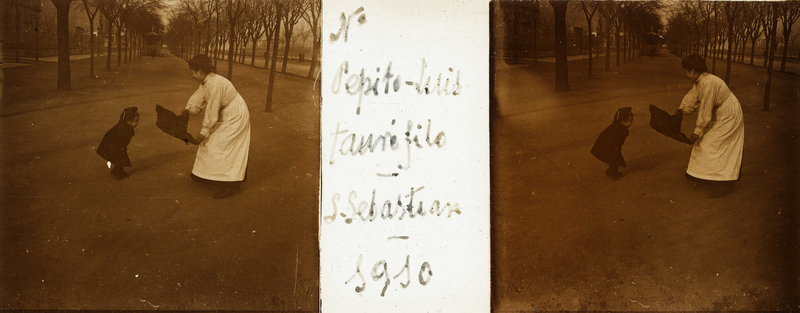 Nº
Pepito-Luis
taurófilo
S. Sebastian
1910